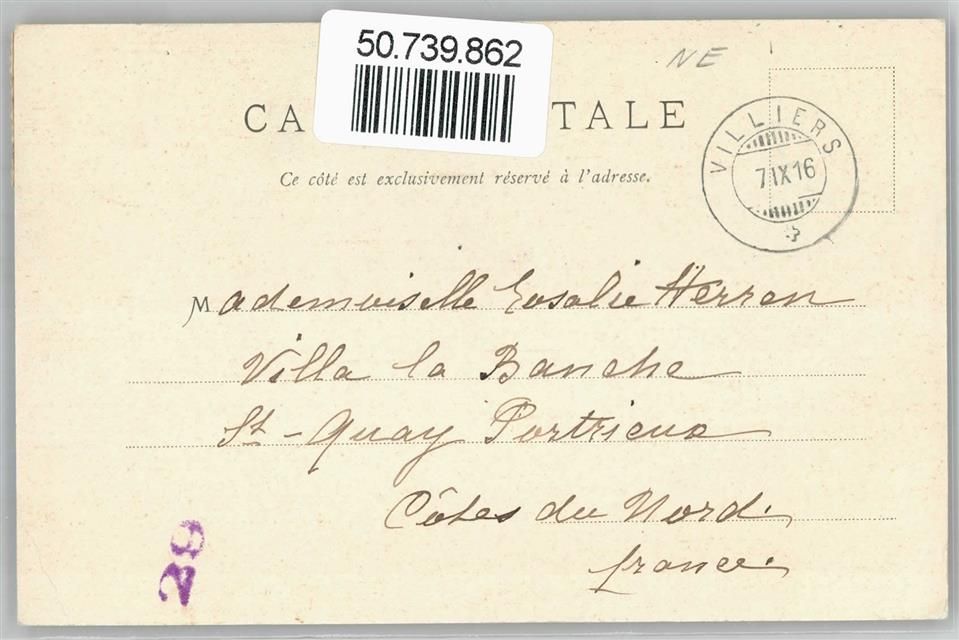 50.739.862
NE
CA TALE
Ce côté est exclusivement réservé à l'adresse.
VILLIERS
7 IX 16
Mademoiselle Rosalie Herren
Villa la Banche
St-Quay Portrieux
Côtes du Nord.
france.
29